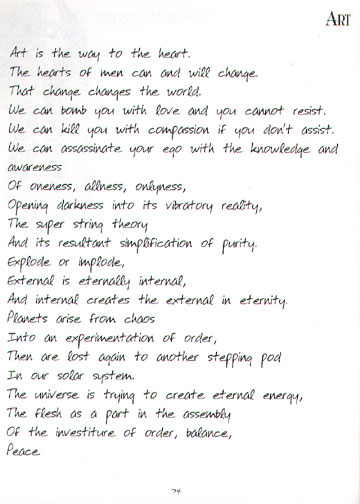 ART
Art is the way to the heart.
The hearts of men can and will change.
That change changes the world.
We can bomb you with love and you cannot resist.
We can kill you with compassion if you don't assist.
We can assassinate your ego with the knowledge and
awareness
Of oneness, allness, onlyness,
Opening darkness into its vibratory reality,
The super string theory
And its resultant simplification of purity.
Explode or implode,
External is eternally internal,
And internal creates the external in eternity.
Planets arise from chaos
Into an experimentation of order,
Then are lost again to another stepping pod
In our solar system.
The universe is trying to create eternal energy,
The flesh as a part in the assembly
Of the investiture of order, balance,
Peace.
74